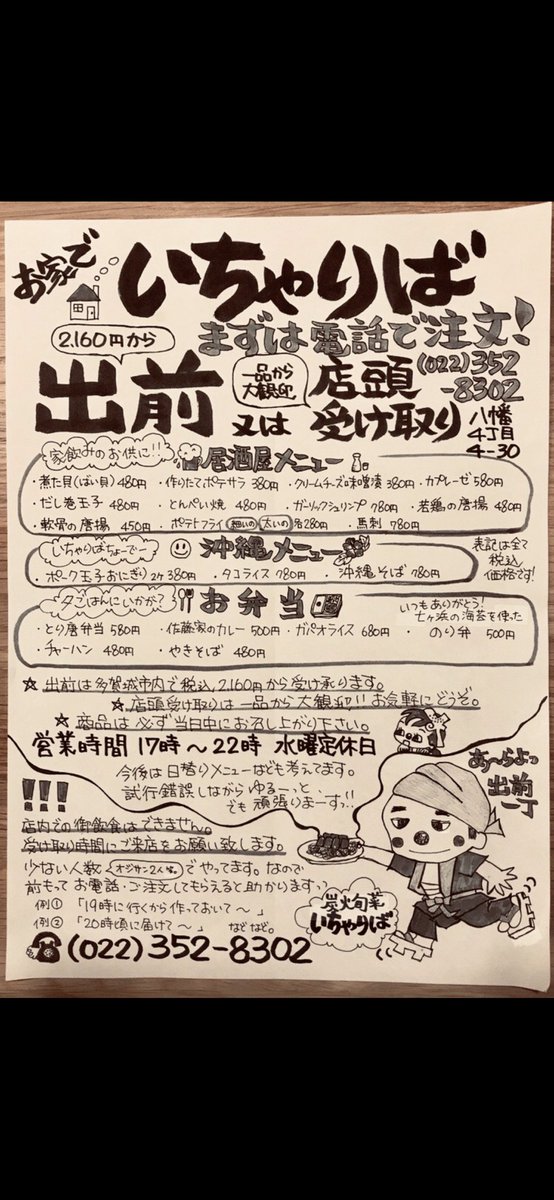 お家で
いちゃりば
まずは電話で注文!
2.160円から
出前
又は
一品から
大歓迎
店頭
受け取り
(022)352
-8302
八幡
4丁目
4-30
家飲みのお供に!!
居酒屋メニュー
・煮た貝(ばい貝)480円 ・作りたてポテサラ 380円 ・クリームチーズの味噌漬 380円 ・カプレーゼ 580円
・だし巻玉子 480円 ・とんぺい焼 480円 ・ガーリックシュリンプ 780円 ・若鶏の唐揚 480円
・軟骨の唐揚 450円 ・ポテトフライ 細いの 太いの 各280円 ・馬刺 780円
いちゃりばちょーでー
沖縄メニュー
・ポーク玉子おにぎり 2ヶ 380円 ・タコライス 780円 ・沖縄そば 780円
表記は全て
税込
価格です!
夕ごはんにいかが?
お弁当
・とり唐弁当 580円 ・佐藤家のカレー 500円 ・ガパオライス 680円
いつもありがとう!
七ヶ浜の海苔を使った
・のり弁 500円
・チャーハン 480円 ・やきそば 480円
☆ 出前は多賀城市内で税込2.160円から受け承ります。
☆ 店頭受け取りは一品から大歓迎!!お気軽にどうぞ。
☆ 商品は必ず当日中にお召し上がり下さい。
営業時間 17時〜22時 水曜定休日
今後は日替りメニューなども考えてます。
試行錯誤しながらゆるーっと、
でも頑張りまーす!!
あ〜らよっ
出前
一丁
!!!
店内での御飲食はできません。
受け取り時間にご来店をお願い致します。
少ない人数(オジサン2人)でやってます。なので
前もってお電話・ご注文してもらえると助かりますっ
例① 「19時に行くから作っておいて〜」
例② 「20時頃に届けて〜」 などなど。
(022)352-8302
炭火旬菜
いちゃりば